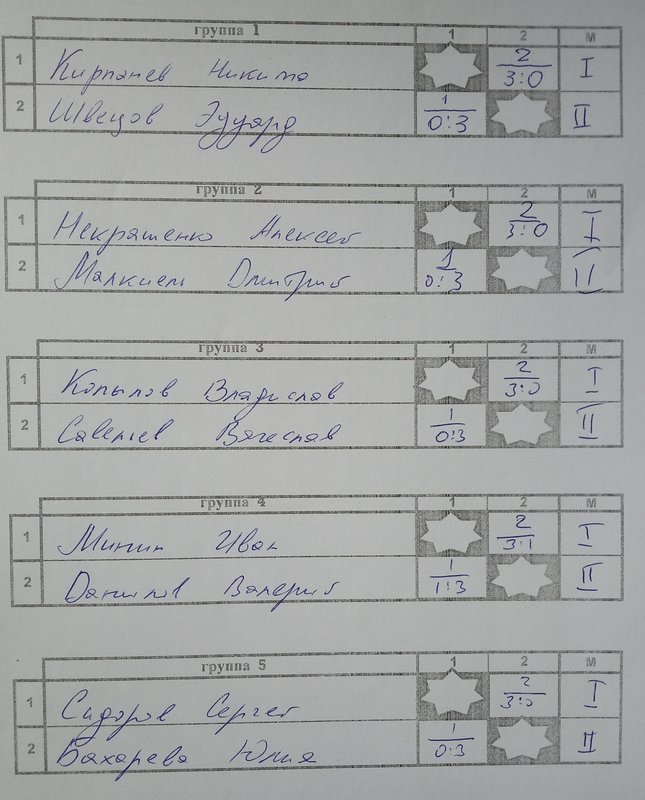 группа 1 1 2 М
1 Кирпанев Никита 2 3:0 I
2 Швецов Эдуард 1 0:3 II
группа 2 1 2 М
1 Некрашенко Алексей 2 3:0 I
2 Малкиель Дмитрий 1 0:3 II
группа 3 1 2 М
1 Копылов Владислав 2 3:0 I
2 Савельев Вячеслав 1 0:3 II
группа 4 1 2 М
1 Минин Иван 2 3:1 I
2 Данилов Валерий 1 1:3 II
группа 5 1 2 М
1 Сидоров Сергей 2 3:0 I
2 Бахарева Юлия 1 0:3 II